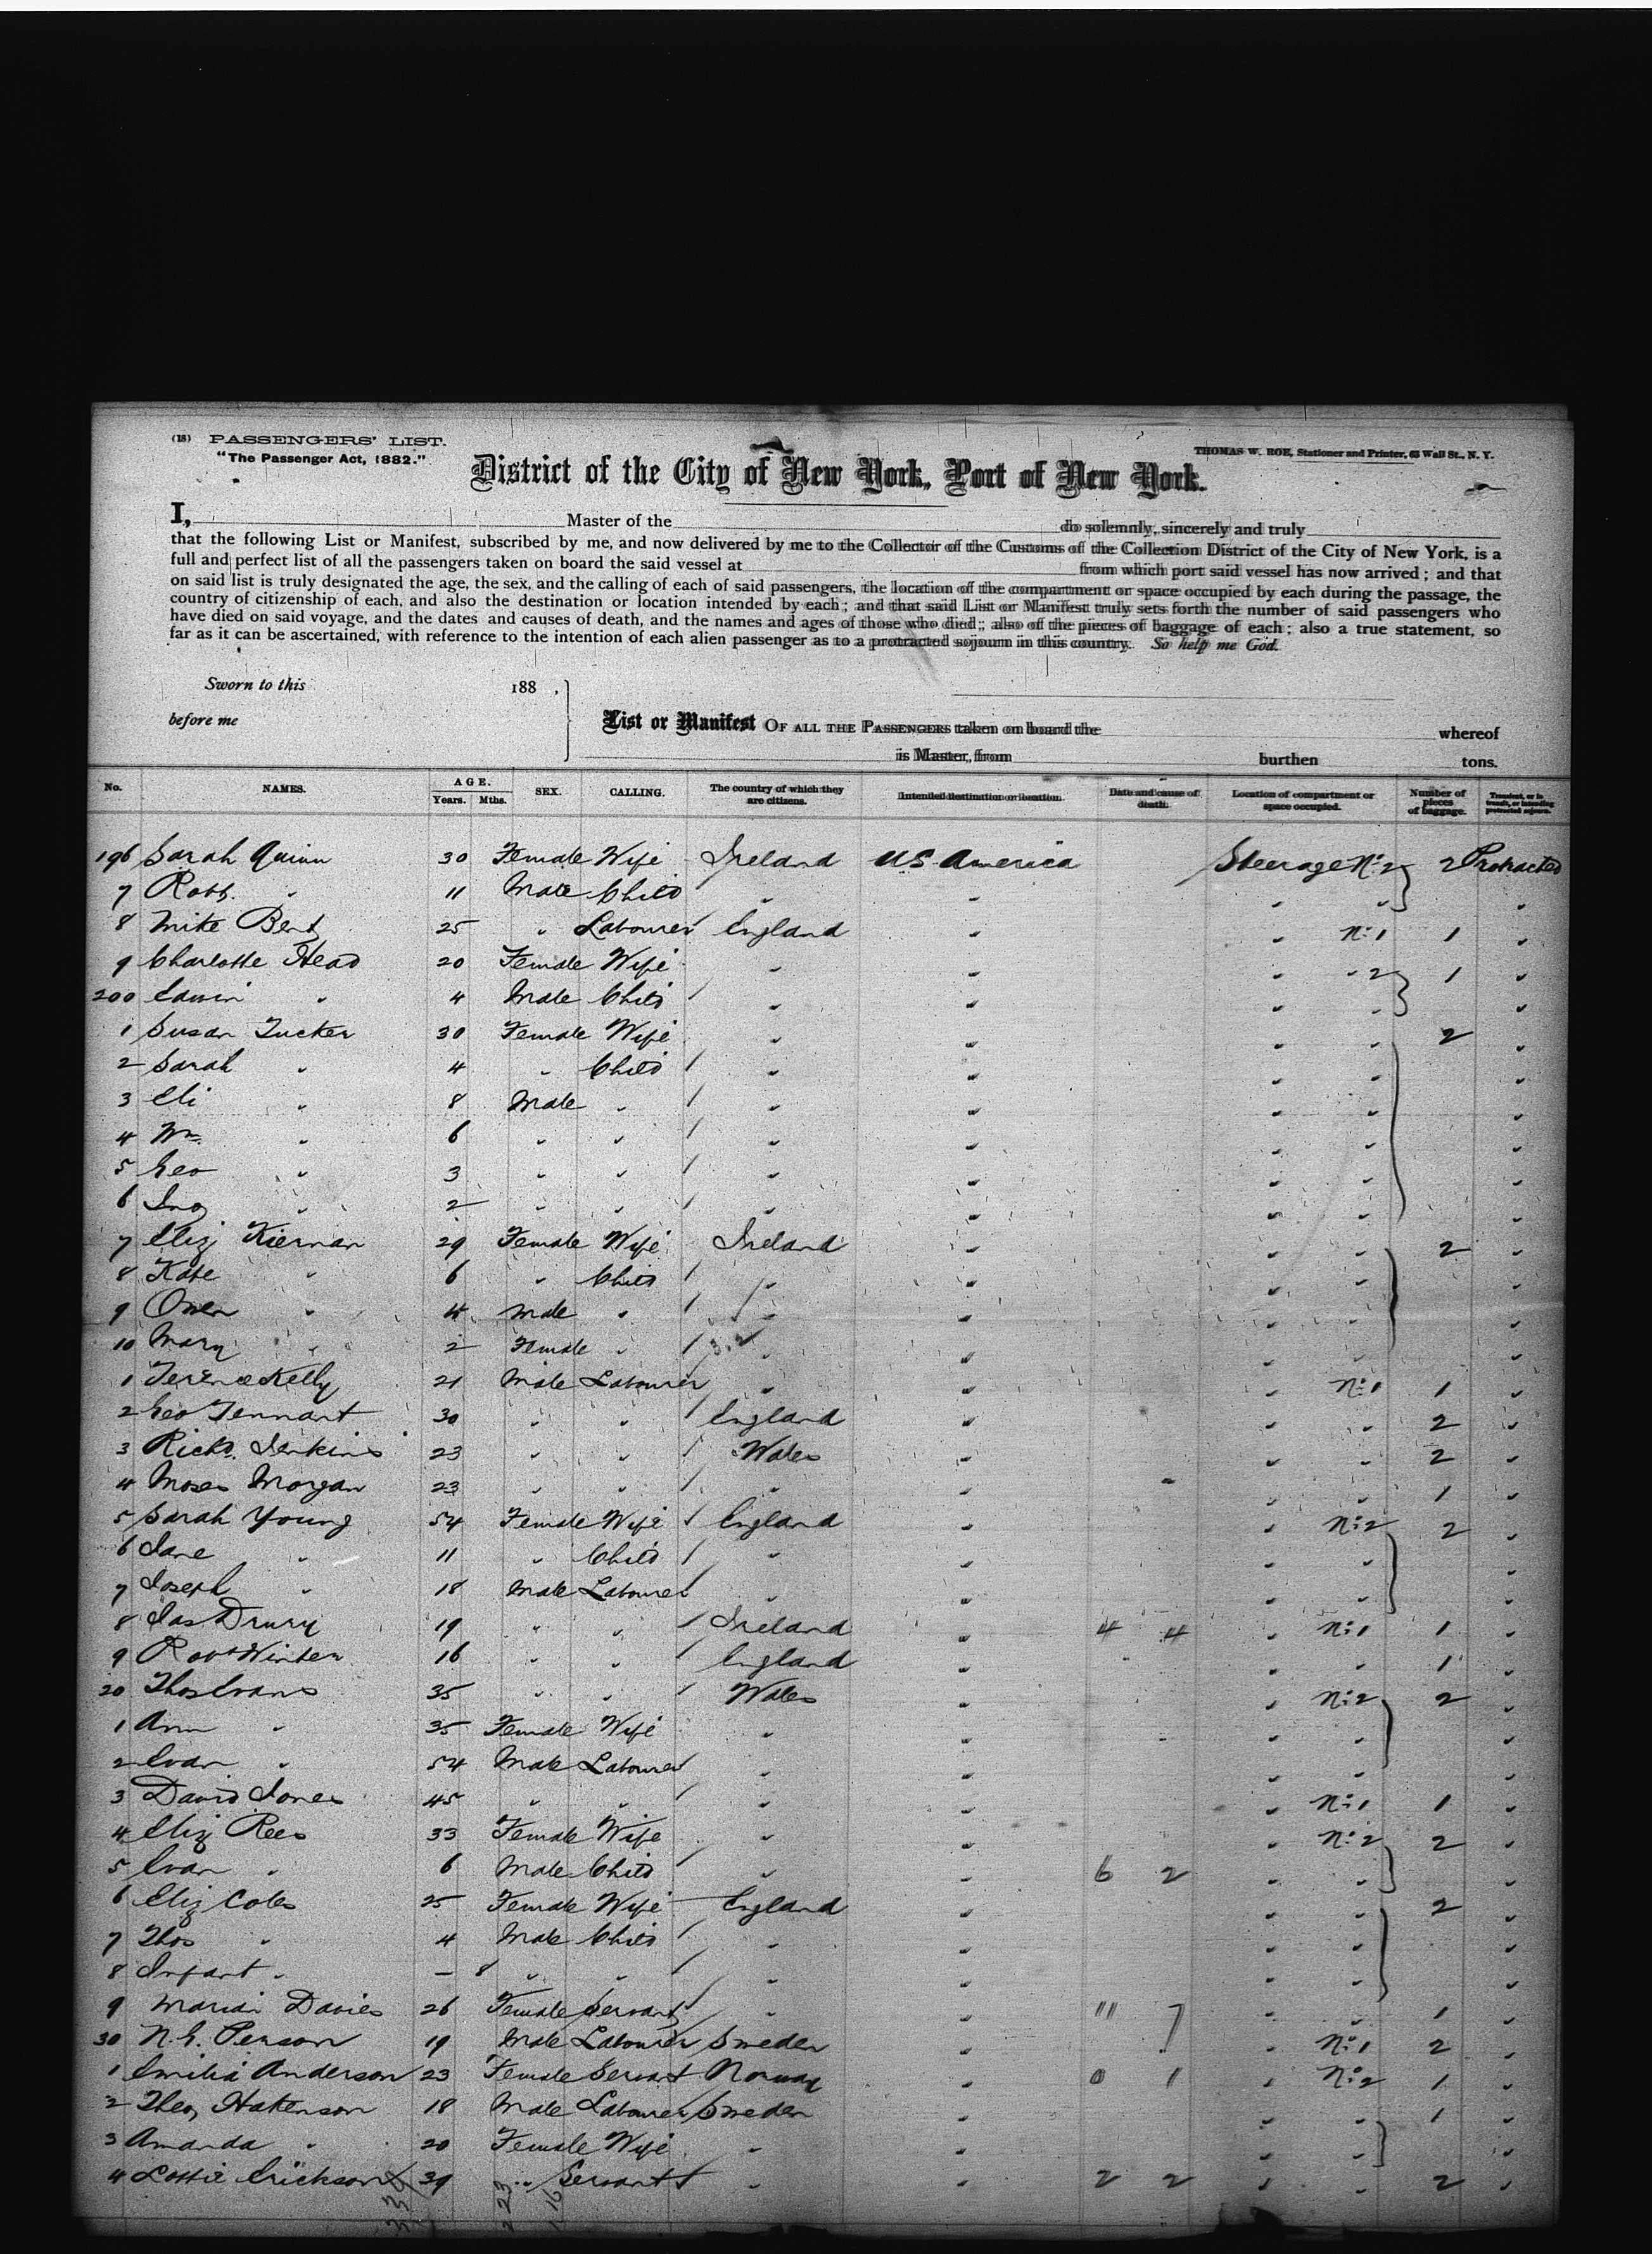 (18) PASSENGERS' LIST.
"The Passenger Act, 1882."
THOMAS W. ROE, Stationer and Printer, 63 Wall St., N. Y.
District of the City of New York, Port of New York.
I, Master of the do solemnly, sincerely and truly
that the following List or Manifest, subscribed by me, and now delivered by me to the Collector of the Customs of the Collection District of the City of New York, is a
full and perfect list of all the passengers taken on board the said vessel at from which port said vessel has now arrived; and that
on said list is truly designated the age, the sex, and the calling of each of said passengers, the location of the compartment or space occupied by each during the passage, the
country of citizenship of each, and also the destination or location intended by each; and that said List or Manifest truly sets forth the number of said passengers who
have died on said voyage, and the dates and causes of death, and the names and ages of those who died; also of the pieces of baggage of each; also a true statement, so
far as it can be ascertained, with reference to the intention of each alien passenger as to a protracted sojourn in this country. So help me God.
Sworn to this 188 ,
before me
List or Manifest OF ALL THE PASSENGERS taken on board the whereof
is Master, from burthen tons.
No. NAMES. AGE. Years. Mths. SEX. CALLING. The country of which they are citizens. Intended destination or location. Date and cause of death. Location of compartment or space occupied. Number of pieces of baggage. Transient, or in transit, or intending protracted sojourn.
196 Sarah Quinn 30 Female Wife Ireland US America Steerage No 2 2 Protracted
7 Robt. " 11 Male Child " " " " "
8 Mike 25 " Labourer England " " No 1 1 "
9 Charlotte Head 20 Female Wife " " " " 2 1 "
200 Edwin " 4 Male Child " " " " "
1 Susan Tucker 30 Female Wife " " " " 2 "
2 Sarah " 4 " Child " " " " "
3 Eli " 8 Male " " " " " "
4 Wm. " 6 " " " " " " "
5 Geo " 3 " " " " " " "
6 Jno " 2 " " " " " " "
7 Eliz Kiernan 29 Female Wife Ireland " " " 2 "
8 Kate " 6 " Child " " " " "
9 Owen " 4 Male " " " " " "
10 Mary " 2 Female " " " " " "
1 Terence Kelly 21 Male Labourer " " " No 1 1 "
2 Geo Tennant 30 " " England " " " 2 "
3 Richd. Jenkins 23 " " Wales " " " 2 "
4 Moses Morgan 23 " " " " " " 1 "
5 Sarah Young 54 Female Wife England " " No 2 2 "
6 Jane " 11 " Child " " " " "
7 Joseph " 18 Male Labourer " " " " "
8 Jas Drury 19 " " Ireland " 4 4 " No 1 1 "
9 Robt Winter 16 " " England " " " 1 "
20 Thos Evans 35 " " Wales " " No 2 2 "
1 Ann " 35 Female Wife " " " " "
2 Evan " 54 Male Labourer " " " " "
3 David Jones 45 " " " " " No 1 1 "
4 Eliz Rees 33 Female Wife " " " No 2 2 "
5 Evan " 6 Male Child " " 6 2 " " "
6 Eliz Coles 25 Female Wife England " " " 2 "
7 Thos " 4 Male Child " " " " "
8 Infant " — 8 " " " " " " "
9 Davies 26 Female Servant " " 11 7 " " 1 "
30 N. G. Person 19 Male Labourer Sweden " " No 1 2 "
1 Emilia Anderson 23 Female Servant Norway " 0 1 " No 2 1 "
2 Hakenson 18 Male Labourer Sweden " " " 1 "
3 Amanda " 20 Female Wife " " " " "
4 Lottie Erickson 39 " Servant " " 2 2 " " 2 "